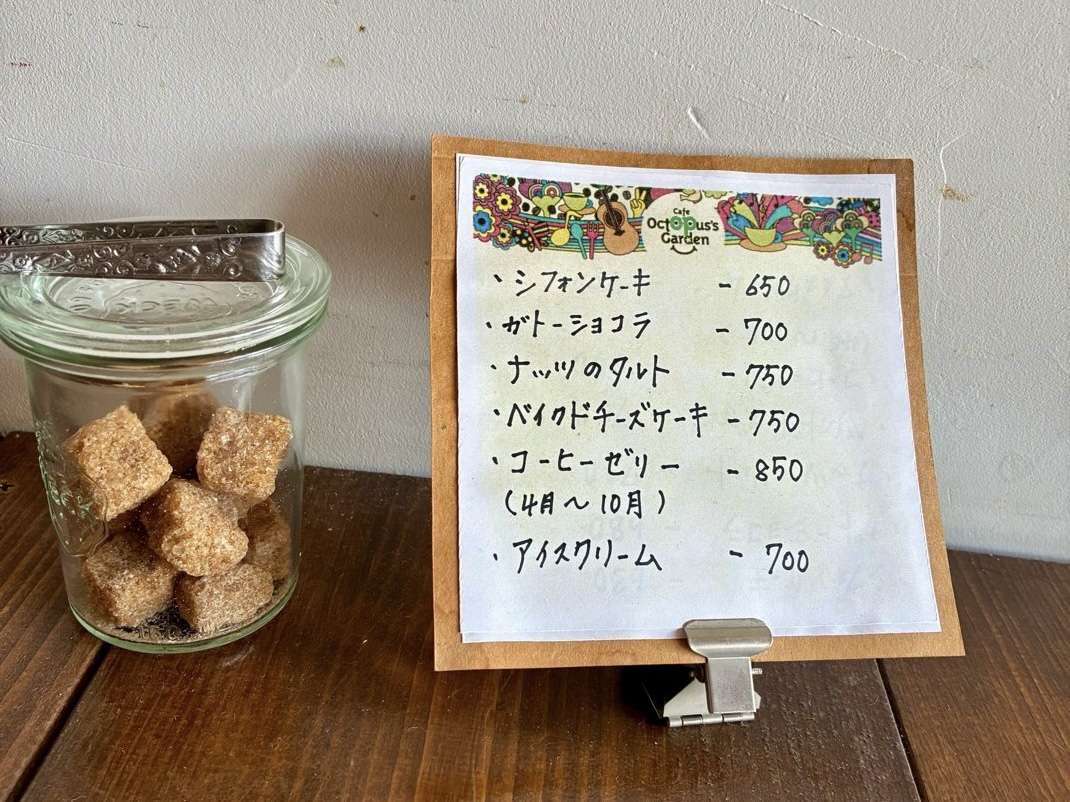 Cafe
Octopus's
Garden
・シフォンケーキ - 650
・ガトーショコラ - 700
・ナッツのタルト - 750
・ベイクドチーズケーキ - 750
・コーヒーゼリー - 850
(4月～10月)
・アイスクリーム - 700